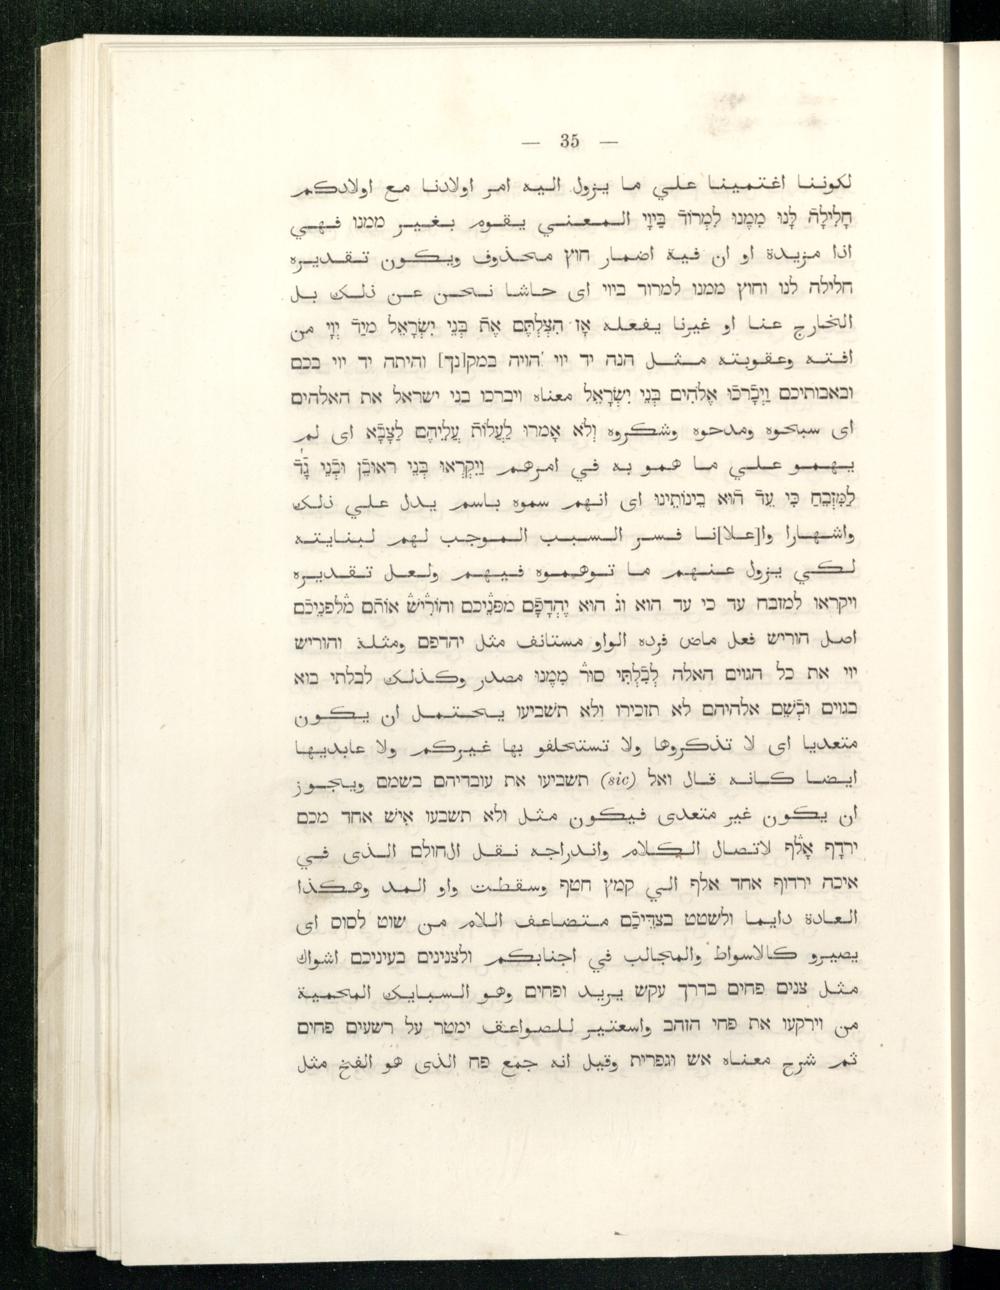 — 35 —
لكوننا اغتمينا علي ما يزول اليه امر اولادنا مع اولادكم
חָלִילָה לָּנוּ מִמֶּנוּ לִמְרוֹד בַּיְוָי المعني يقوم بغير ממנו فهي
اذا مزيدة او ان فية اضمار חוץ محذوف ويكون تقديره
חלילה לנו וחוץ ממנו למרוד ביוי اى حاشا نحن عن ذلك بل
الخارج عنا او غيرنا يفعله אָז הִצַּלְתֶּם אֶת בְּנֵי יִשְׂרָאֵל מִיַּד יְוָי من
افته وعقوبته مثل הנה יד יוי הויה במק[נך] והיתה יד יוי בכם
ובאבותיכם וַיְבָרְכוּ אֱלֹהִים בְּנֵי יִשְׂרָאֵל معناه ויברכו בני ישראל את האלהים
اى سبحوه ومدحوه وشكروه וְלֹא אָמְרוּ לַעֲלוֹת עֲלֵיהֶם לַצָּבָא اى لم
يهمو علي ما همو به في امرهم וַיִּקְרְאוּ בְּנֵי רְאוּבֵן וּבְנֵי גָד
לַמִּזְבֵּחַ כִּי עֵד הוּא בֵּינוֹתֵינוּ اى انهم سموه باسم يدل علي ذلك
واشهارا وا[علا]نا فسر السبب الموجب لهم لبنايته
لكي يزول عنهم ما توهموه فيهم ولعل تقديره
ויקראו למזבח עד כי עד הוא וג֗ הוּא יֶהְדֳּפֵם מִפְּנֵיכֶם וְהוֹרִישׁ אוֹתָם מִלִּפְנֵיכֶם
اصل הוריש فعل ماض فرده الواو مستانف مثل יהדפם ومثلة והוריש
יוי את כל הגוים האלה לְבִלְתִּי סוּר מִמֶּנּוּ مصدر وكذلك לבלתי בוא
בגוים וּבְשֵׁם אלהיהם לא תזכירו ולא תשביעו يحتمل ان يكون
متعديا اى لا تذكروها ولا تستحلفو بها غيركم ولا عابديها
ايضا كانه قال ואל (sic) תשביעו את עובדיהם בשמם ويجوز
ان يكون غير متعدى فيكون مثل ולא תשבעו אִישׁ אחד מכם
יִרְדָּף אָלֶף لاتصال الكلام واندراجه نقل الחולם الذى في
איכה ירדוף אחד אלף الي קמץ חטף وسقطت واو المد وهكذا
العادة دايما ולשטט בצדיכם متضاعف اللام من שוט לסוס اى
يصيرو كالاسواط والمجالب في اجنابكم ולצנינים בעיניכם اشواك
مثل צנים פחים בדרך עקש يريد ופחים وهو السبايك المحمية
من וירקעו את פחי הזהב واسعتير للصواعق ימטר על רשעים פחים
ثم شرح معناه אש וגפרית وقيل انه جمع פח الذى هو الفخ مثل